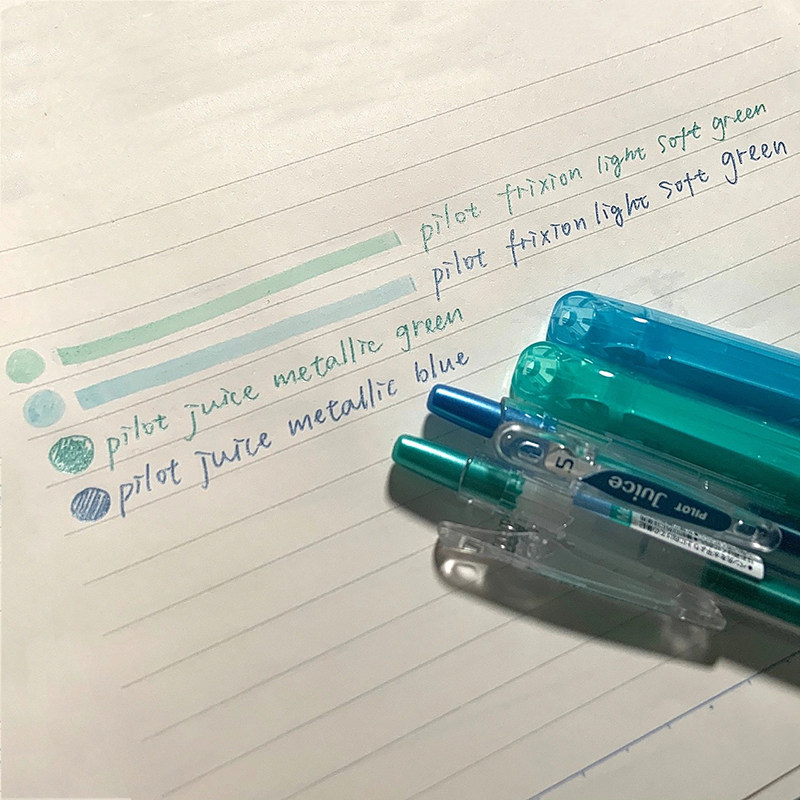 pilot frixion light soft green
pilot frixion light soft green
pilot juice metallic green
pilot juice metallic blue
PILOT Juice